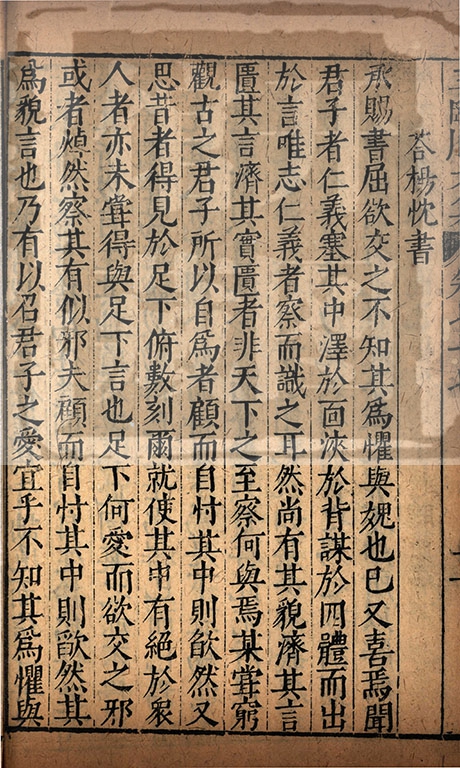 荅楊忱書
承賜書屈欲交之不知其爲懼與媿也已又喜焉聞
君子者仁義塞其中澤於面浹於背謀於四體而出
於言唯志仁義者察而識之耳然尚有其貌濟其言
匱其言濟其實匱者非天下之至察何與焉某甞窮
觀古之君子所以自爲者顧而自忖其中則欿然又
思昔者得見於足下俯數刻爾就使其中有絕於衆
人者亦未甞得與足下言也足下何愛而欲交之邪
或者焯然察其有似邪夫顧而自忖其中則欿然其
爲貌言也乃有以召君子之愛宜乎不知其爲懼與